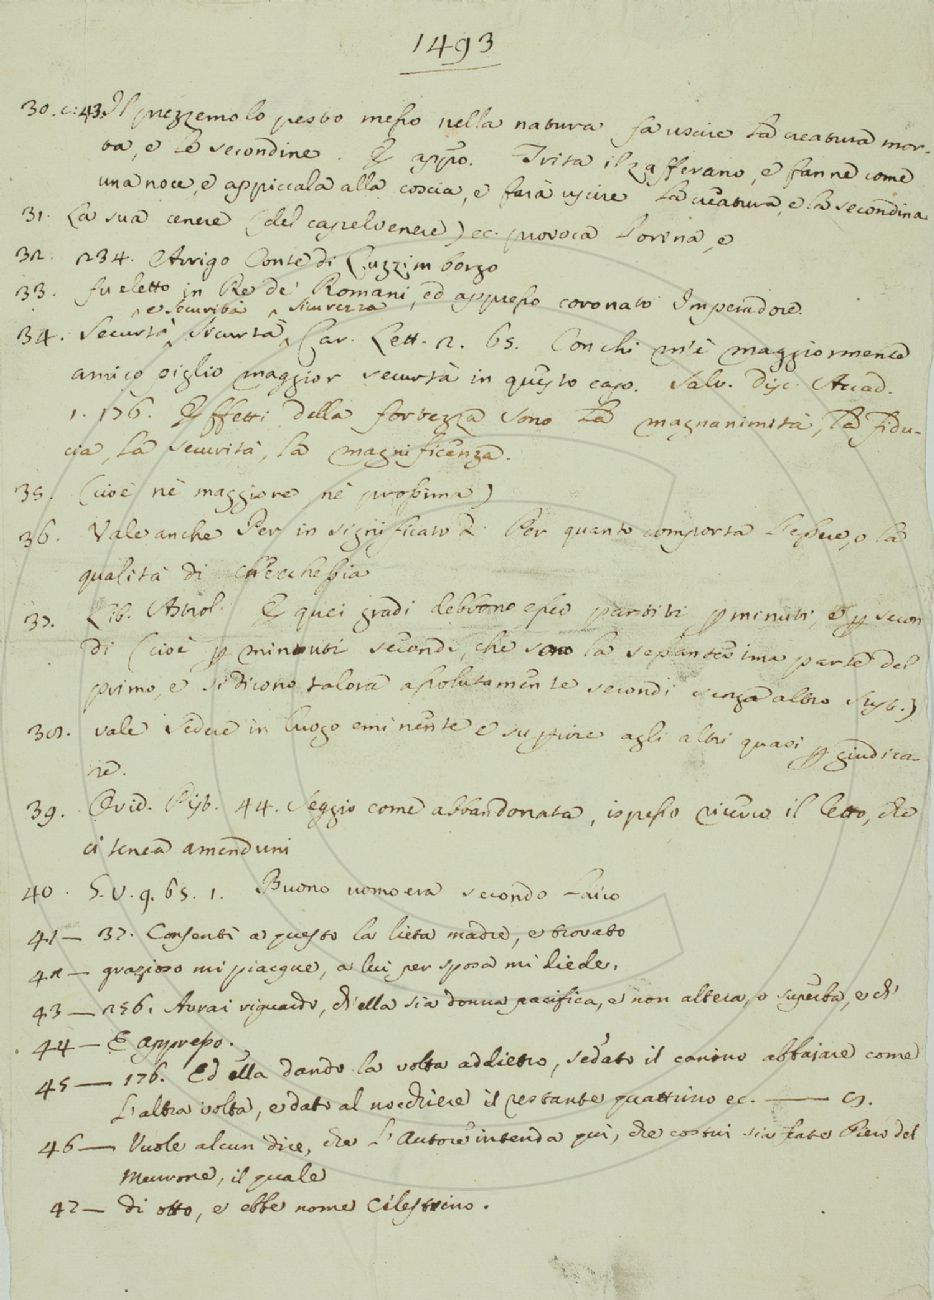 1493
30. c. 43. Il prezzemolo pesto messo nella natura fa uscire la creatura mor-
ta, e le secondine. E appo. Trita il zafferano, e fanne come
una noce, e appiccala alla coscia, e farà uscire la creatura, e la secondina
31. La sua cenere (del capelvenere) ec. provoca l'orina, e
32. 234. Arrigo Conte di Luzzimborgo
33. fu eletto in Re de' Romani, ed appresso coronato Imperadore
e Securità sicurezza
34. Securtà, sicurtà, Car. Lett. 2. 65. Con chi m'è maggiormente
amico piglio maggior securtà in questo caso. Salv. Disc. Accad.
1. 176. Effetti della fortezza sono la magnanimità, la fidu-
cia, la securità, la magnificenza.
35. (cioè nè maggiore nè prossima)
36. Vale anche Per in significato di Per quanto comporta l'essere, o la
qualità di checchessia
37. Lib. Astrol. E quei gradi debbono esser partiti p minuti, e p secon
di (cioè p minuti secondi, che sono la sessantesima parte del
primo, e si dicono talora assolutamente secondi senza altro sust.)
38. vale sedere in luogo eminente e superiore agli altri quasi p giudica-
re.
39. Ovid. Pist. 44. Veggio come abbandonata, ispesso ricerco il letto, che
ci tenea amenduni
40. S. V. q. 65. 1. Buono uomo era secondo laico
41 — 37. Consentì a questo la lieta madre, e trovato
42 — grazioso mi piacque, a lui per sposa mi diede.
43 — 256. Avrai riguardo, ch'ella sia donna pacifica, e non altera, o superba, e ch'
44 — E appresso.
45 — 176. Ed ella dando la volta addietro, sedato il canino abbaiare come
l'altra volta, e dato al nocchiere il restante quattrino ec. —
46 — Vuole alcun dice, che l'Autore intenda qui, che costui sia frate Piero del
Murrone, il quale
47 — di otto, e ebbe nome Cilestrino.